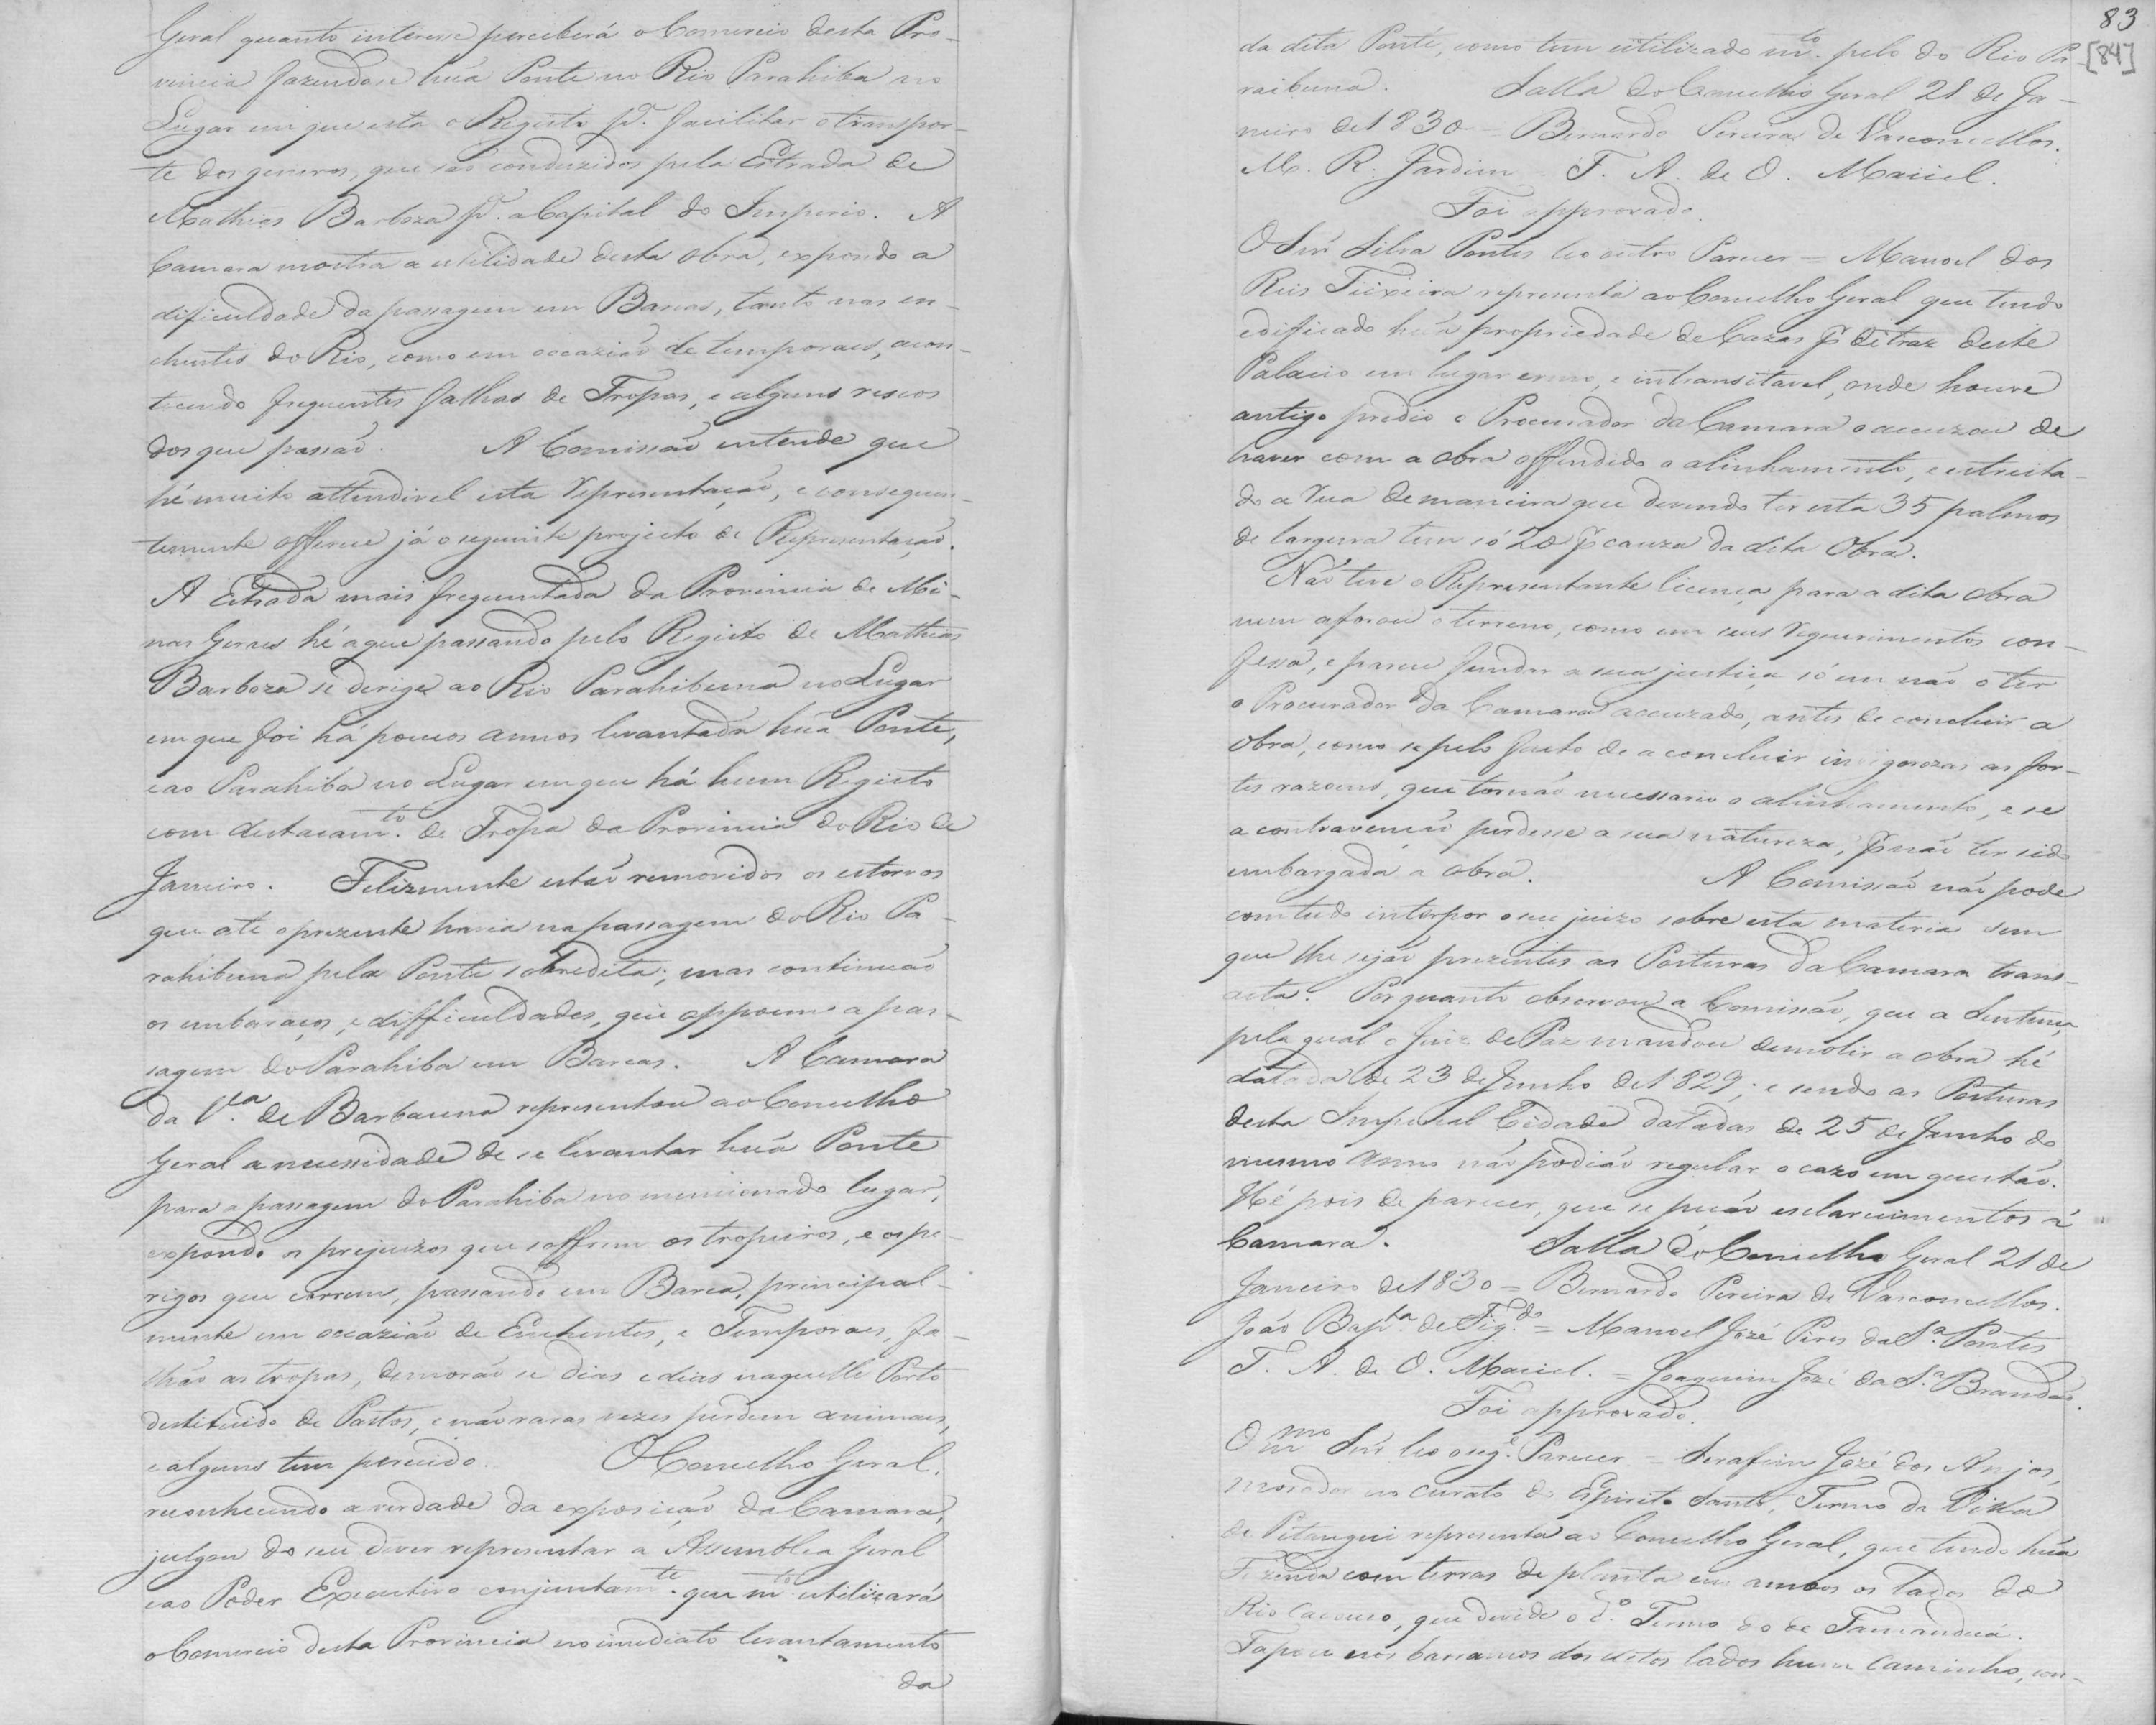 Geral quanto interesse perceberá o Comercio desta Pro-
vincia fazendose hũa Ponte no Rio Parahiba no
Lugar em que esta o Registo pª. facilitar o transpor-
te dos generos, que são conduzidos pela Estrada de
Mathias Barboza pª. a Capital do Imperio. A
Camara mostra a utilidade desta obra, expondo a
dificuldade da passagem em Barcas, tanto nas en-
chentes do Rio, como em occazião de temporaes, acon-
tecendo frequentes falhas de Tropas, e alguns riscos
dos que passão. A Comissão entende que
hé muito attendivel esta representação, e consequen-
temente offerece já o seguinte projecto de Representação.
A Estrada mais frequentada da Provincia de Mi-
nas Geraes hé a que passando pelo Registo de Mathias
Barboza se dirige ao Rio Parahibuna no Lugar
em que foi há poucos annos levantada hũa Ponte,
e ao Parahiba no Lugar em que há hum Registo
com destacamto. de Tropa da Provincia do Rio de
Janeiro. Felizmente estão removidos os estorvos
que até o prezente havia na passagem do Rio Pa-
rahibuna pela Ponte sobredita; mas continuão
os embaraços, e difficuldades, que oppoem a pas-
sagem do Parahiba em Barcas. A Camara
da Vª. de Barbacena representou ao Concelho
Geral a necessidade de se levantar hũa Ponte
para a passagem do Parahiba no mencionado lugar,
expondo os prejuizos que soffrem os tropeiros, e os pe-
rigos que correm, passando em Barca, principal-
mente em occazião de Enchentes, e Temporaes, fa-
lhão as tropas, demorão se dias e dias naquelle Porto
destituido de Pastos, e não raras vezes perdem animaes,
e alguns tem perecido. O Concelho Geral,
reconhecendo a verdade da exposição da Camara,
julgou do seu dever representar a Assemblea Geral
e ao Poder Executivo conjuntamte. que mto. utilizará
o Comercio desta Provincia no imediato levantamento
da
83
[84]
da dita Ponte, como tem utilizado mto. pelo do Rio Pa-
raibuna. Salla do Concelho Geral 21 de Ja-
neiro de 1830 = Bernardo Pereira de Vasconcellos.
M. R. Jardim = F. A. de O. Maciel.
Foi approvado.
O Snr Silva Pontes leo outro Parecer = Manoel dos
Reis Teixeira representa ao Concelho Geral que tendo
edificado hũa propriedade de Cazas p detraz deste
Palacio em lugar ermo, e intransitavel, onde houve
antigo predio o Procurador da Camara o acuzou de
haver com a obra offendido o alinhamento, e estreita-
do a rua de maneira que devendo ter esta 35 palmos
de largura tem só 20 p cauza da dita Obra.
Não teve o Representante licença para a dita obra
nem aforou o terreno, como em seus requerimentos con-
fessa, e parece fundar a sua justiça só em não o ter
o Procurador da Camara accuzado, antes de concluir a
obra, como se pelo facto de a concluir in igorozas as for-
tes razoens, que tornão necessario o alinhamento, e se
a contravenção perdesse a sua natureza, p não ter sido
embargada a obra. A Comissão não pode
comtudo interpor o seu juizo sobre esta materia sem
que lhe sejão prezentes as Posturas da Camara trans-
acta. Porquanto observou a Comissão, que a Sentença,
pela qual o Juiz de Paz mandou demolir a obra hé
datada de 23 de Junho de 1829; e sendo as Posturas
desta Imperial Cidade datadas de 25 de Junho do
mesmo anno não podião regular o cazo em questão.
Hé pois de parecer, que se peção esclarecimentos á
Camara. Salla do Concelho Geral 21 de
Janeiro de 1830 = Bernardo Pereira de Vasconcellos.
João Bapta. de Figdo. = Manoel Jozé Pires da Sª. Pontes
F. A. de O. Maciel. = Joaquim Jozé da Sª. Brandão.
Foi approvado.
O mmo Snr leo o sege. Parecer = Serafim Jozé dos Anjos,
morador no curato do Espirito Santo, Termo da Villa
de Pitangui representa ao Concelho Geral, que tendo hũa
Fazenda com terras de planta em ambos os lados do
Rio Cacoco, que divide o do. Termo do de Tamanduá.
Tapou nos barrancos dos ditos lados hum Caminho, con-